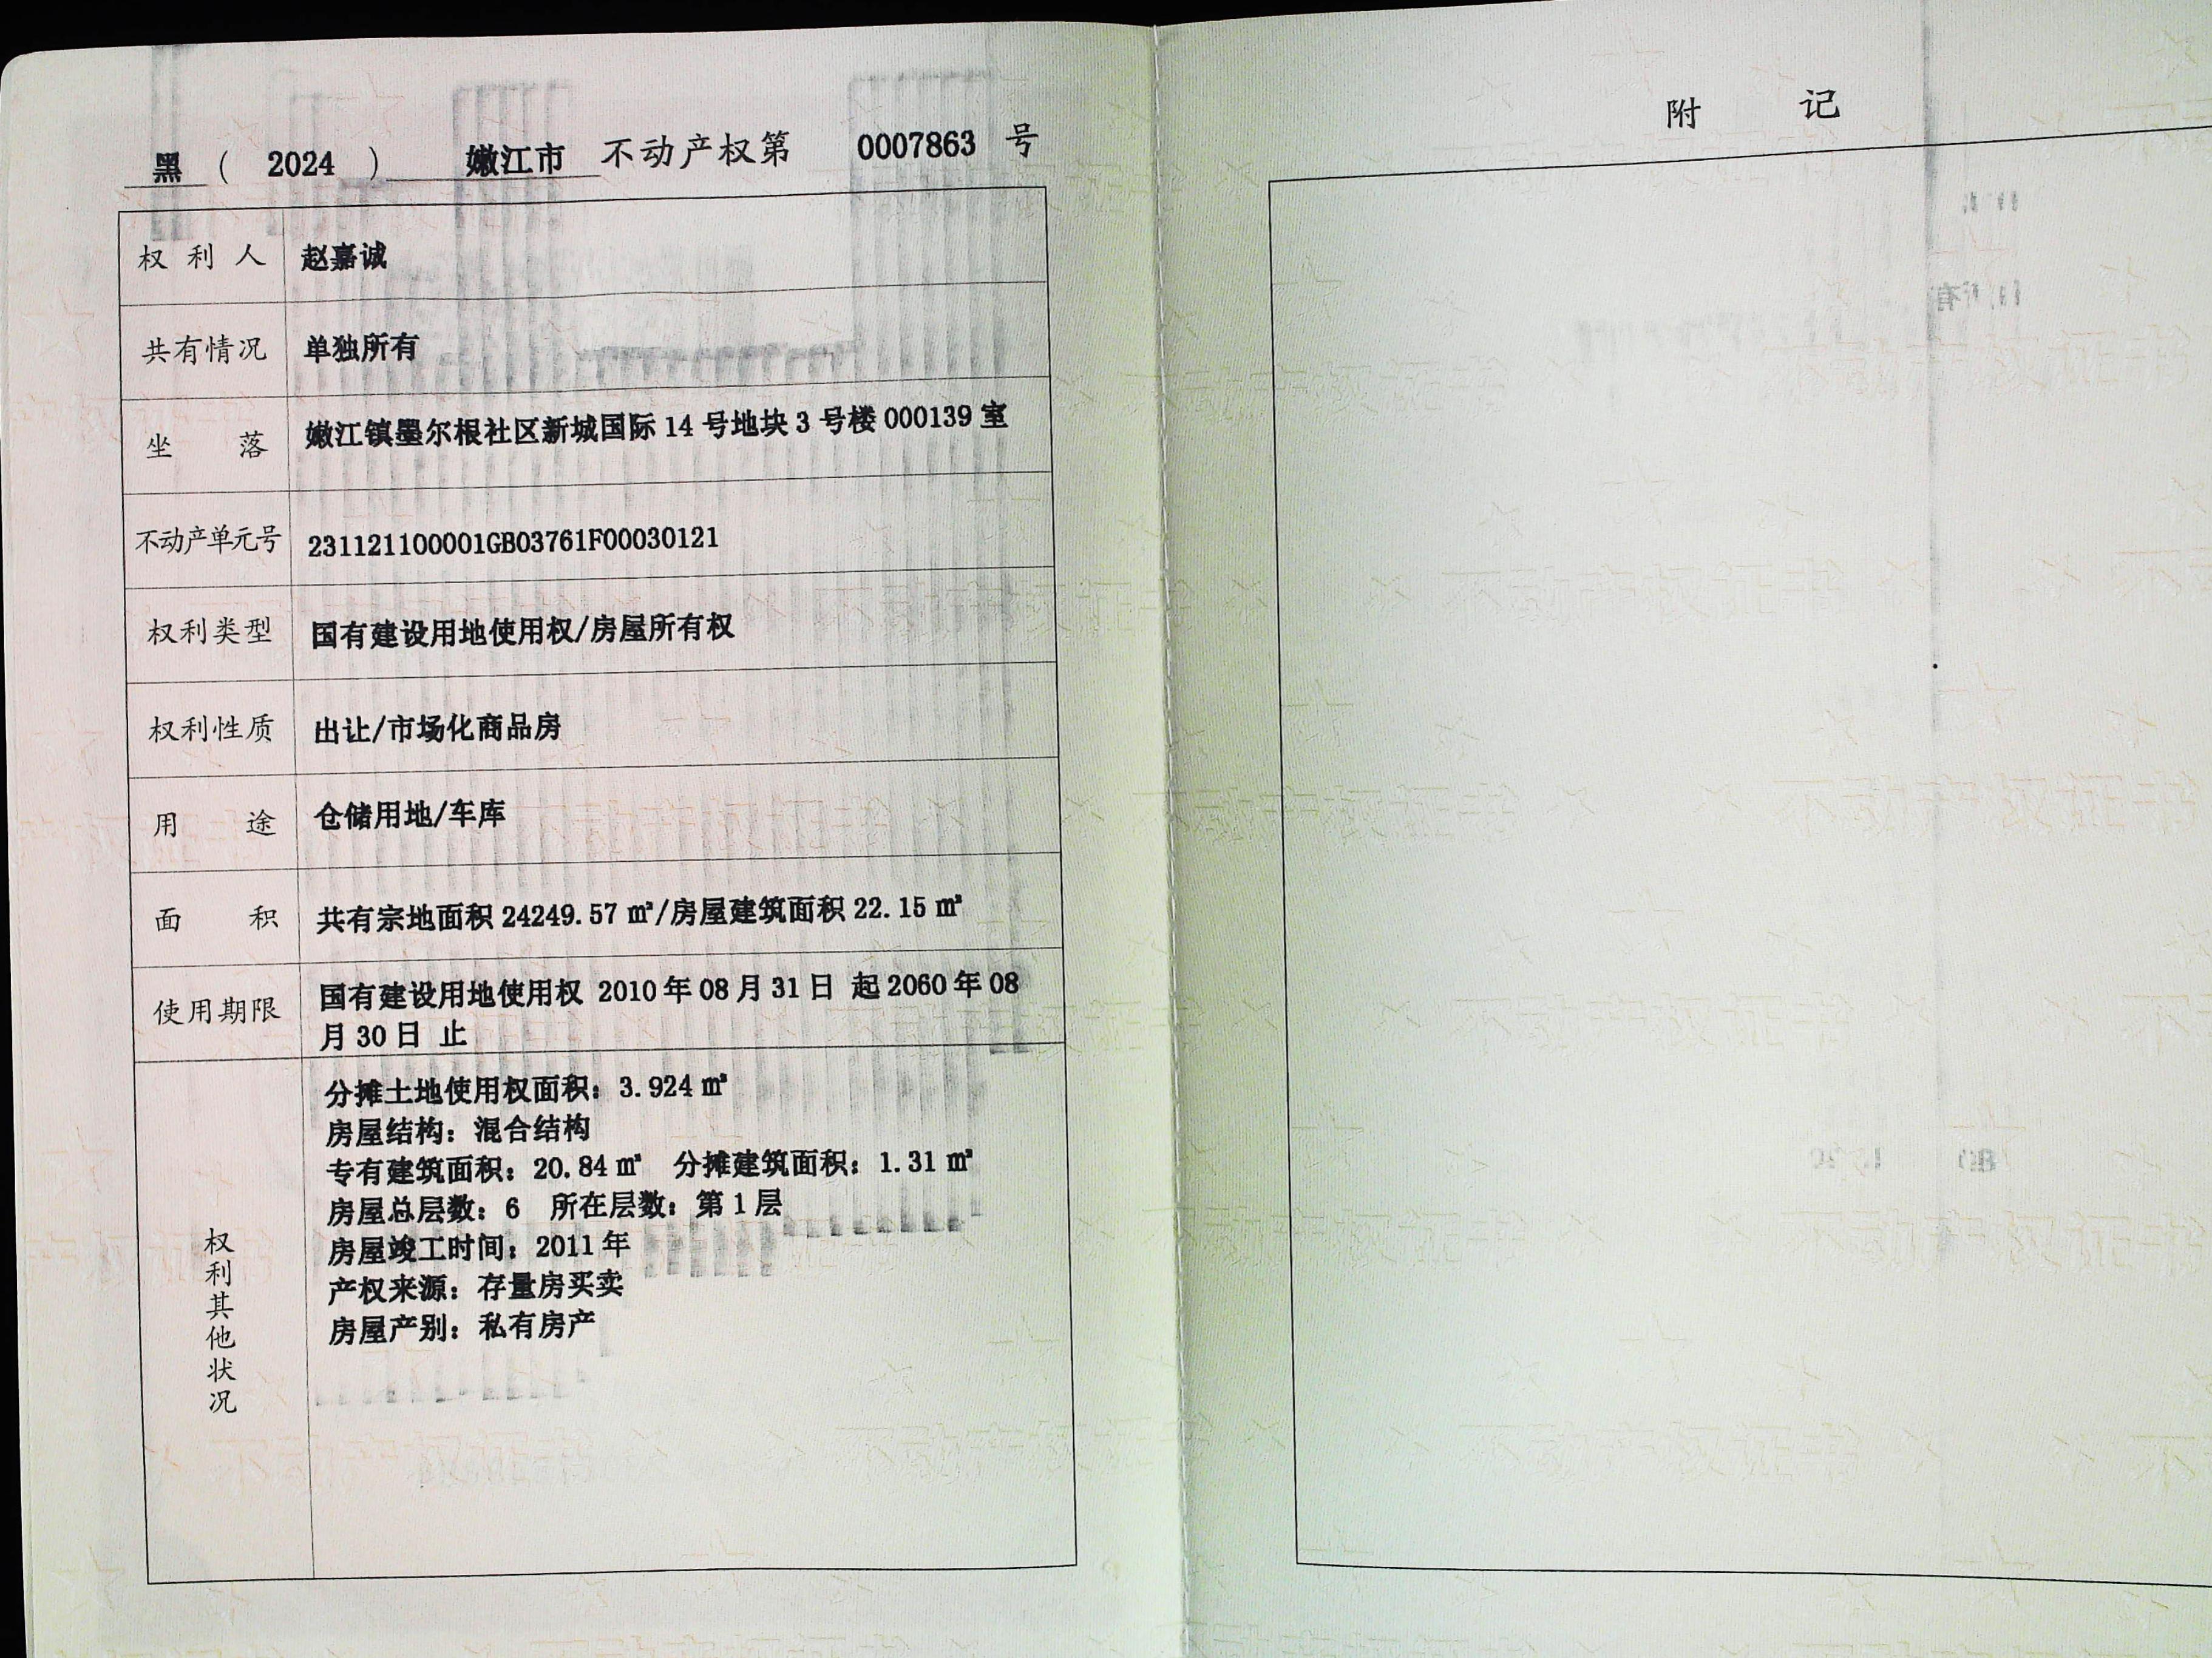 黑（2024）嫩江市不动产权第 0007863 号
权利人 赵嘉诚
共有情况 单独所有
坐落 嫩江镇墨尔根社区新城国际 14 号地块 3 号楼 000139 室
不动产单元号 231121100001GB03761F00030121
权利类型 国有建设用地使用权/房屋所有权
权利性质 出让/市场化商品房
用途 仓储用地/车库
面积 共有宗地面积 24249.57 ㎡/房屋建筑面积 22.15 ㎡
使用期限 国有建设用地使用权 2010 年 08 月 31 日 起 2060 年 08
月 30 日 止
权利其他状况
分摊土地使用权面积：3.924 ㎡
房屋结构：混合结构
专有建筑面积：20.84 ㎡ 分摊建筑面积：1.31 ㎡
房屋总层数：6 所在层数：第 1 层
房屋竣工时间：2011 年
产权来源：存量房买卖
房屋产别：私有房产
附记